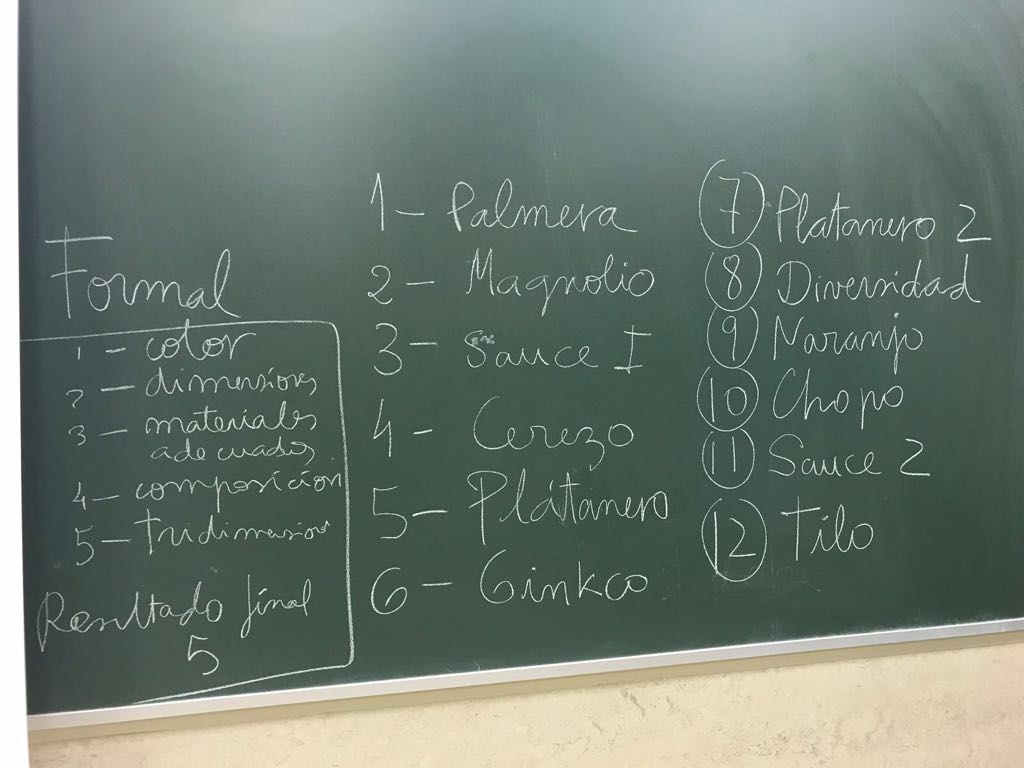 Formal
1 - color
2 - dimensiones
3 - materiales
adecuados
4 - composición
5 - tridimensión
Resultado final
5
1 - Palmera
2 - Magnolio
3 - Sauce I
4 - Cerezo
5 - Plátanero
6 - Ginkco
7 Platanero 2
8 Diversidad
9 Naranjo
10 Chopo
11 Sauce 2
12 Tilo